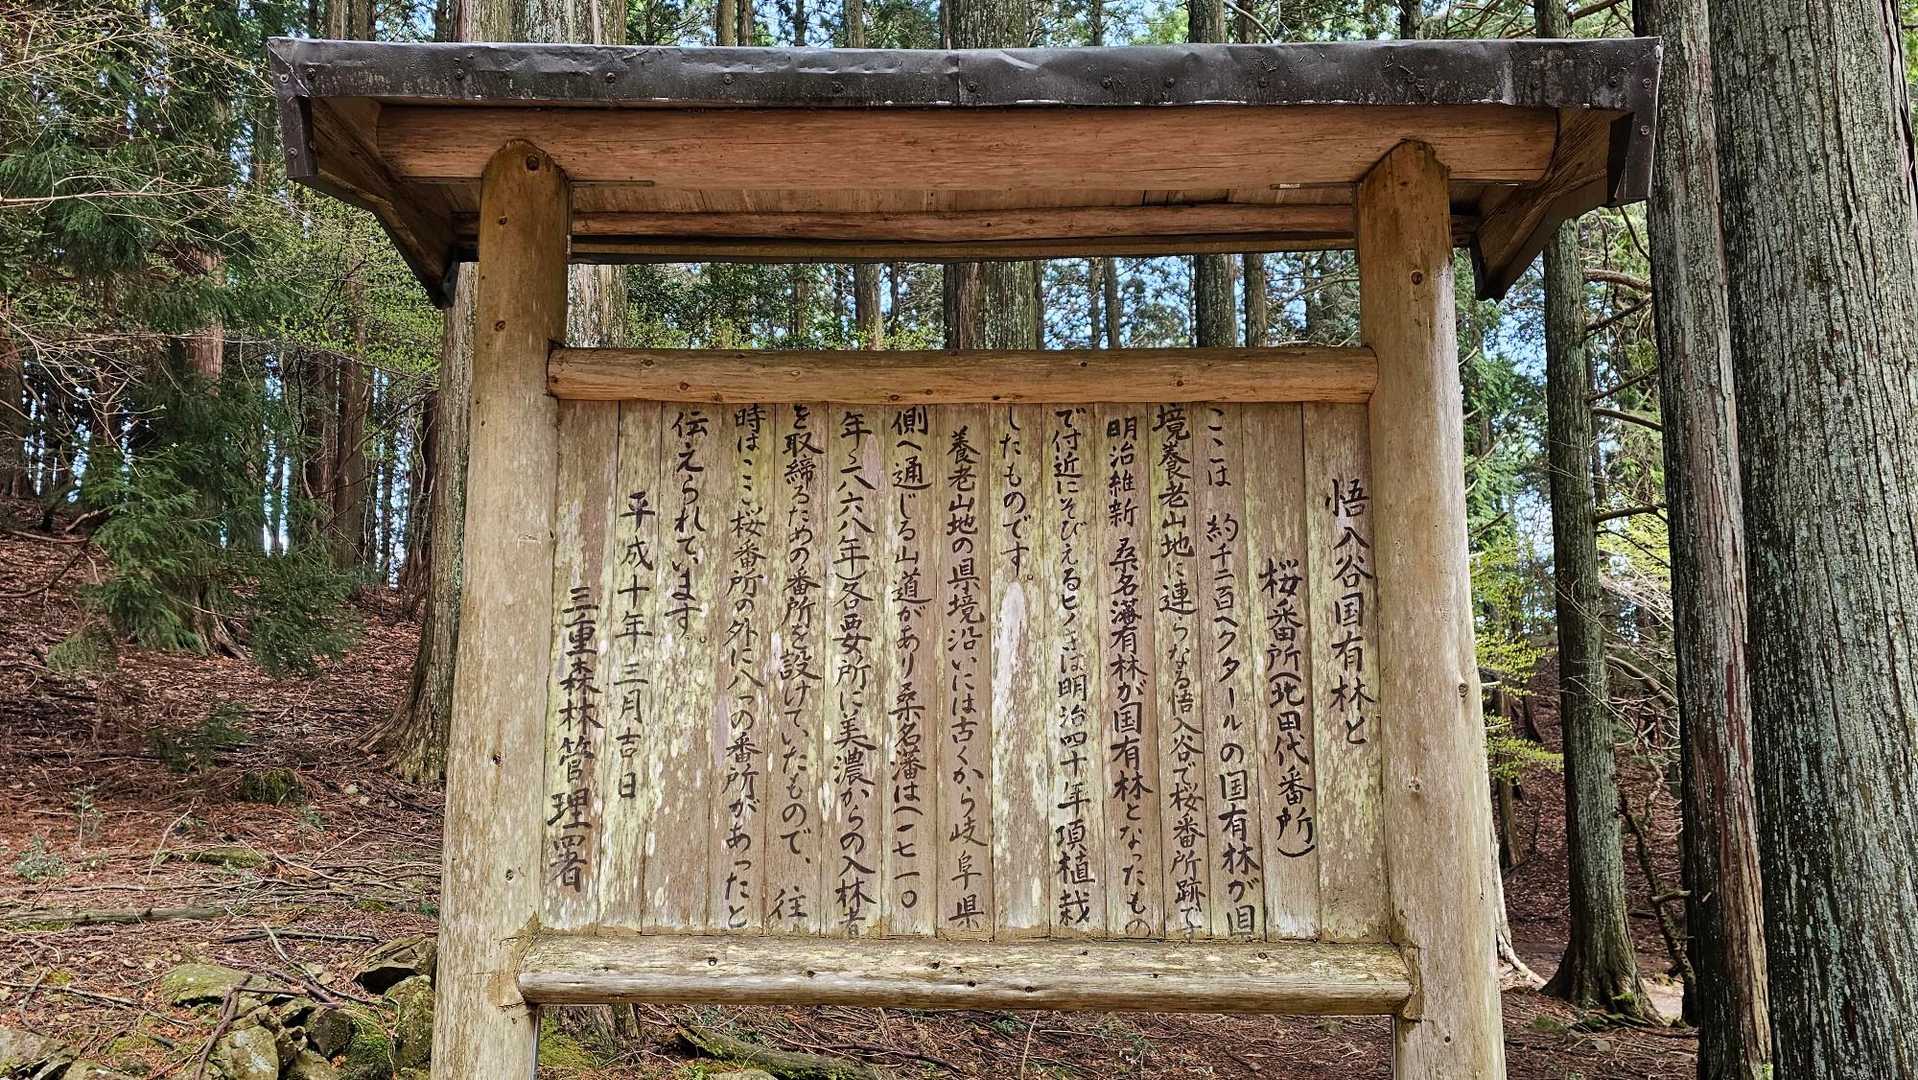 悟入谷国有林と
桜番所(北田代番所)
ここは 約千二百ヘクタールの国有林が県
境養老山地に連らなる悟入谷で桜番所跡です
明治維新 桑名藩有林が国有林となったもの
で付近にそびえるヒノキは明治四十年頃植栽
したものです。
養老山地の県境沿いには古くから岐阜県
側へ通じる山道があり桑名藩は(一七一〇
年〜一八六八年各要所に美濃からの入林者
を取締るための番所を設けていたもので、往
時はここ桜番所の外に八つの番所があったと
伝えられています。
平成十年三月吉日
三重森林管理署